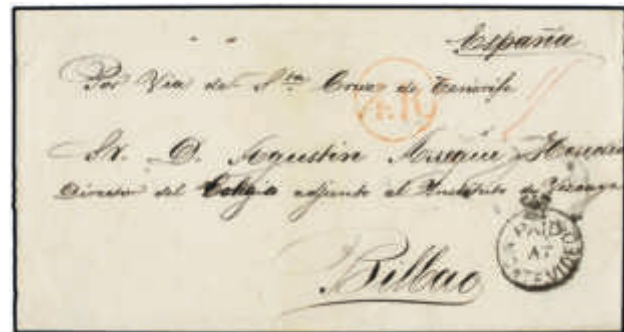 España
Por Via de Sta Cruz de Tenerife
4.R
Sr. D. Agustin
Director del Colegio adjunto al Instituto de Vizcaya
PAID
AT
MONTEVIDEO
Bilbao